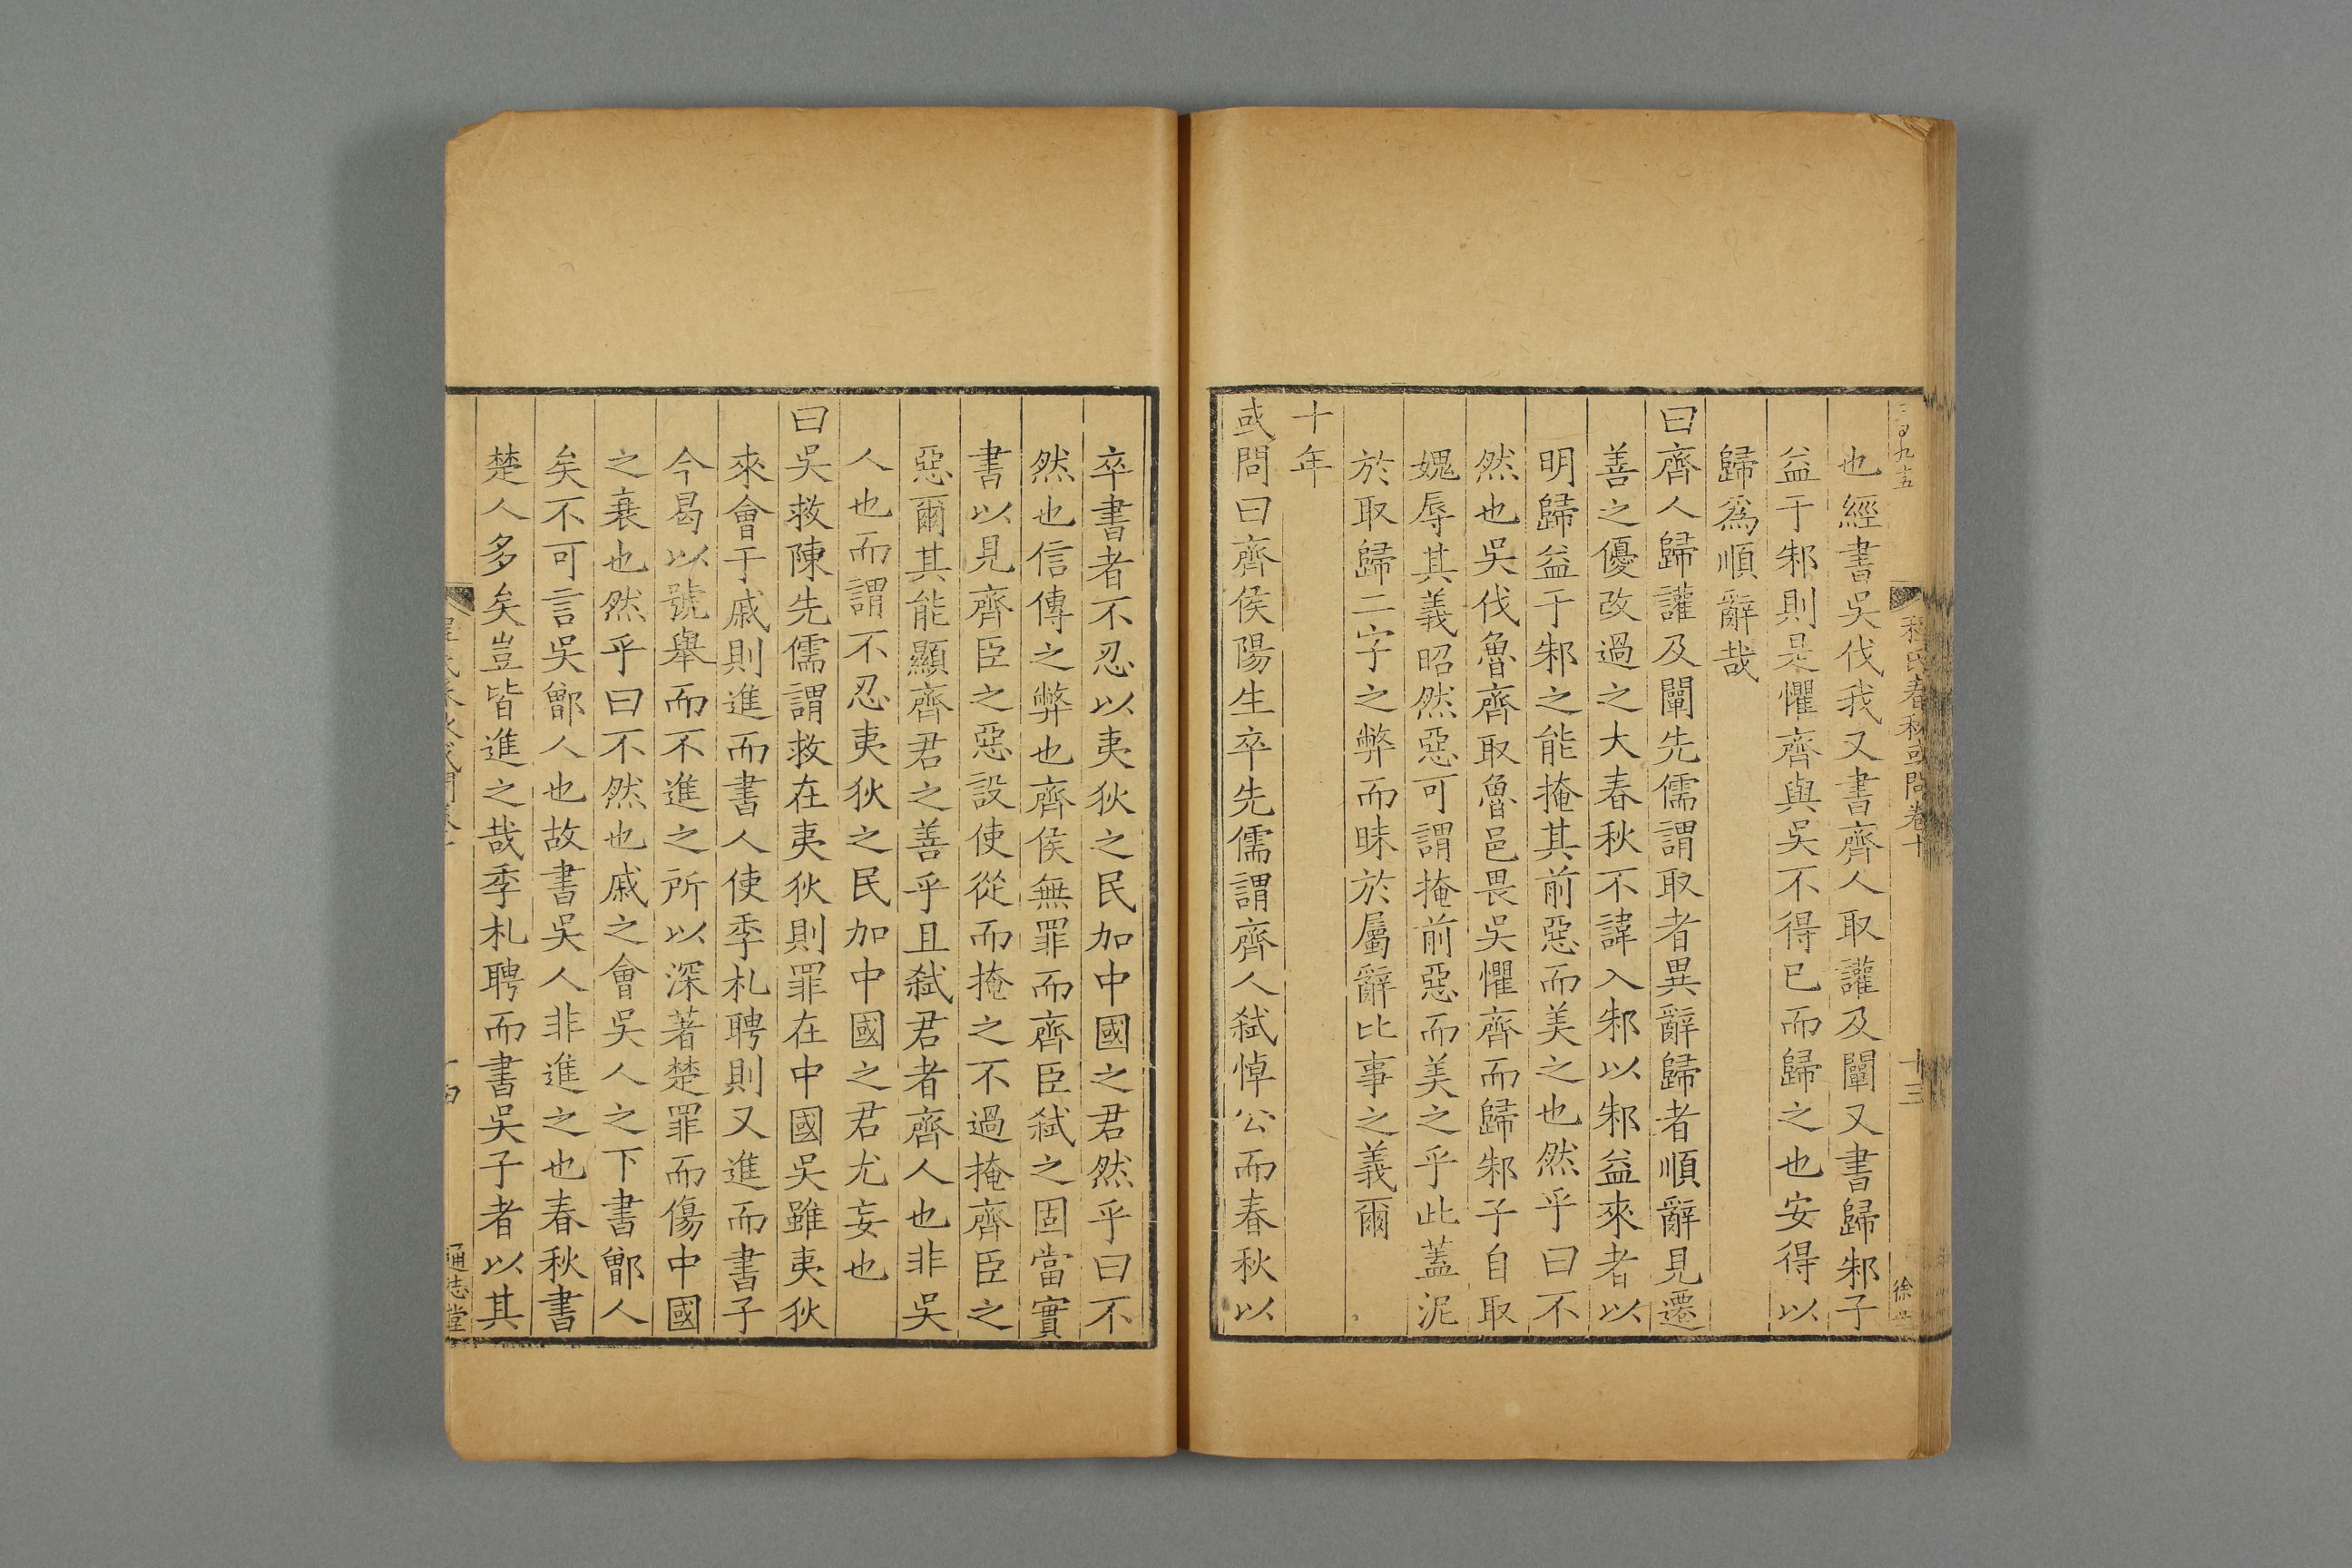 程氏春秋或問卷十
十三
也經書吳伐我又書齊人取讙及闡又書歸邾子
益于邾則是懼齊與吳不得已而歸之也安得以
歸爲順辭哉
曰齊人歸讙及闡先儒謂取者異辭歸者順辭見遷
善之優改過之大春秋不諱入邾以邾益來者以
明歸益于邾之能掩其前惡而美之也然乎曰不
然也吳伐魯齊取魯邑畏吳懼齊而歸邾子自取
媿辱其義昭然惡可謂掩前惡而美之乎此蓋泥
於取歸二字之弊而昧於屬辭比事之義爾
十年
或問曰齊侯陽生卒先儒謂齊人弑悼公而春秋以
卒書者不忍以夷狄之民加中國之君然乎曰不
然也信傳之弊也齊侯無罪而齊臣弑之固當實
書以見齊臣之惡設使從而掩之不過掩齊臣之
惡爾其能顯齊君之善乎且弑君者齊人也非吳
人也而謂不忍夷狄之民加中國之君尤妄也
曰吳救陳先儒謂救在夷狄則罪在中國吳雖夷狄
來會于戚則進而書人使季札聘則又進而書子
今曷以號舉而不進之所以深著楚罪而傷中國
之衰也然乎曰不然也戚之會吳人之下書鄫人
矣不可言吳鄫人也故書吳人非進之也春秋書
楚人多矣豈皆進之哉季札聘而書吳子者以其
通志堂